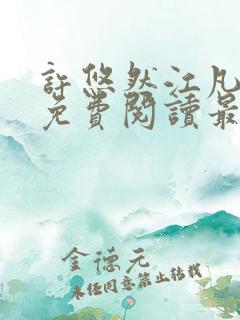 許悠然江凡
免費閱讀最
金德元
未经同意禁止转载